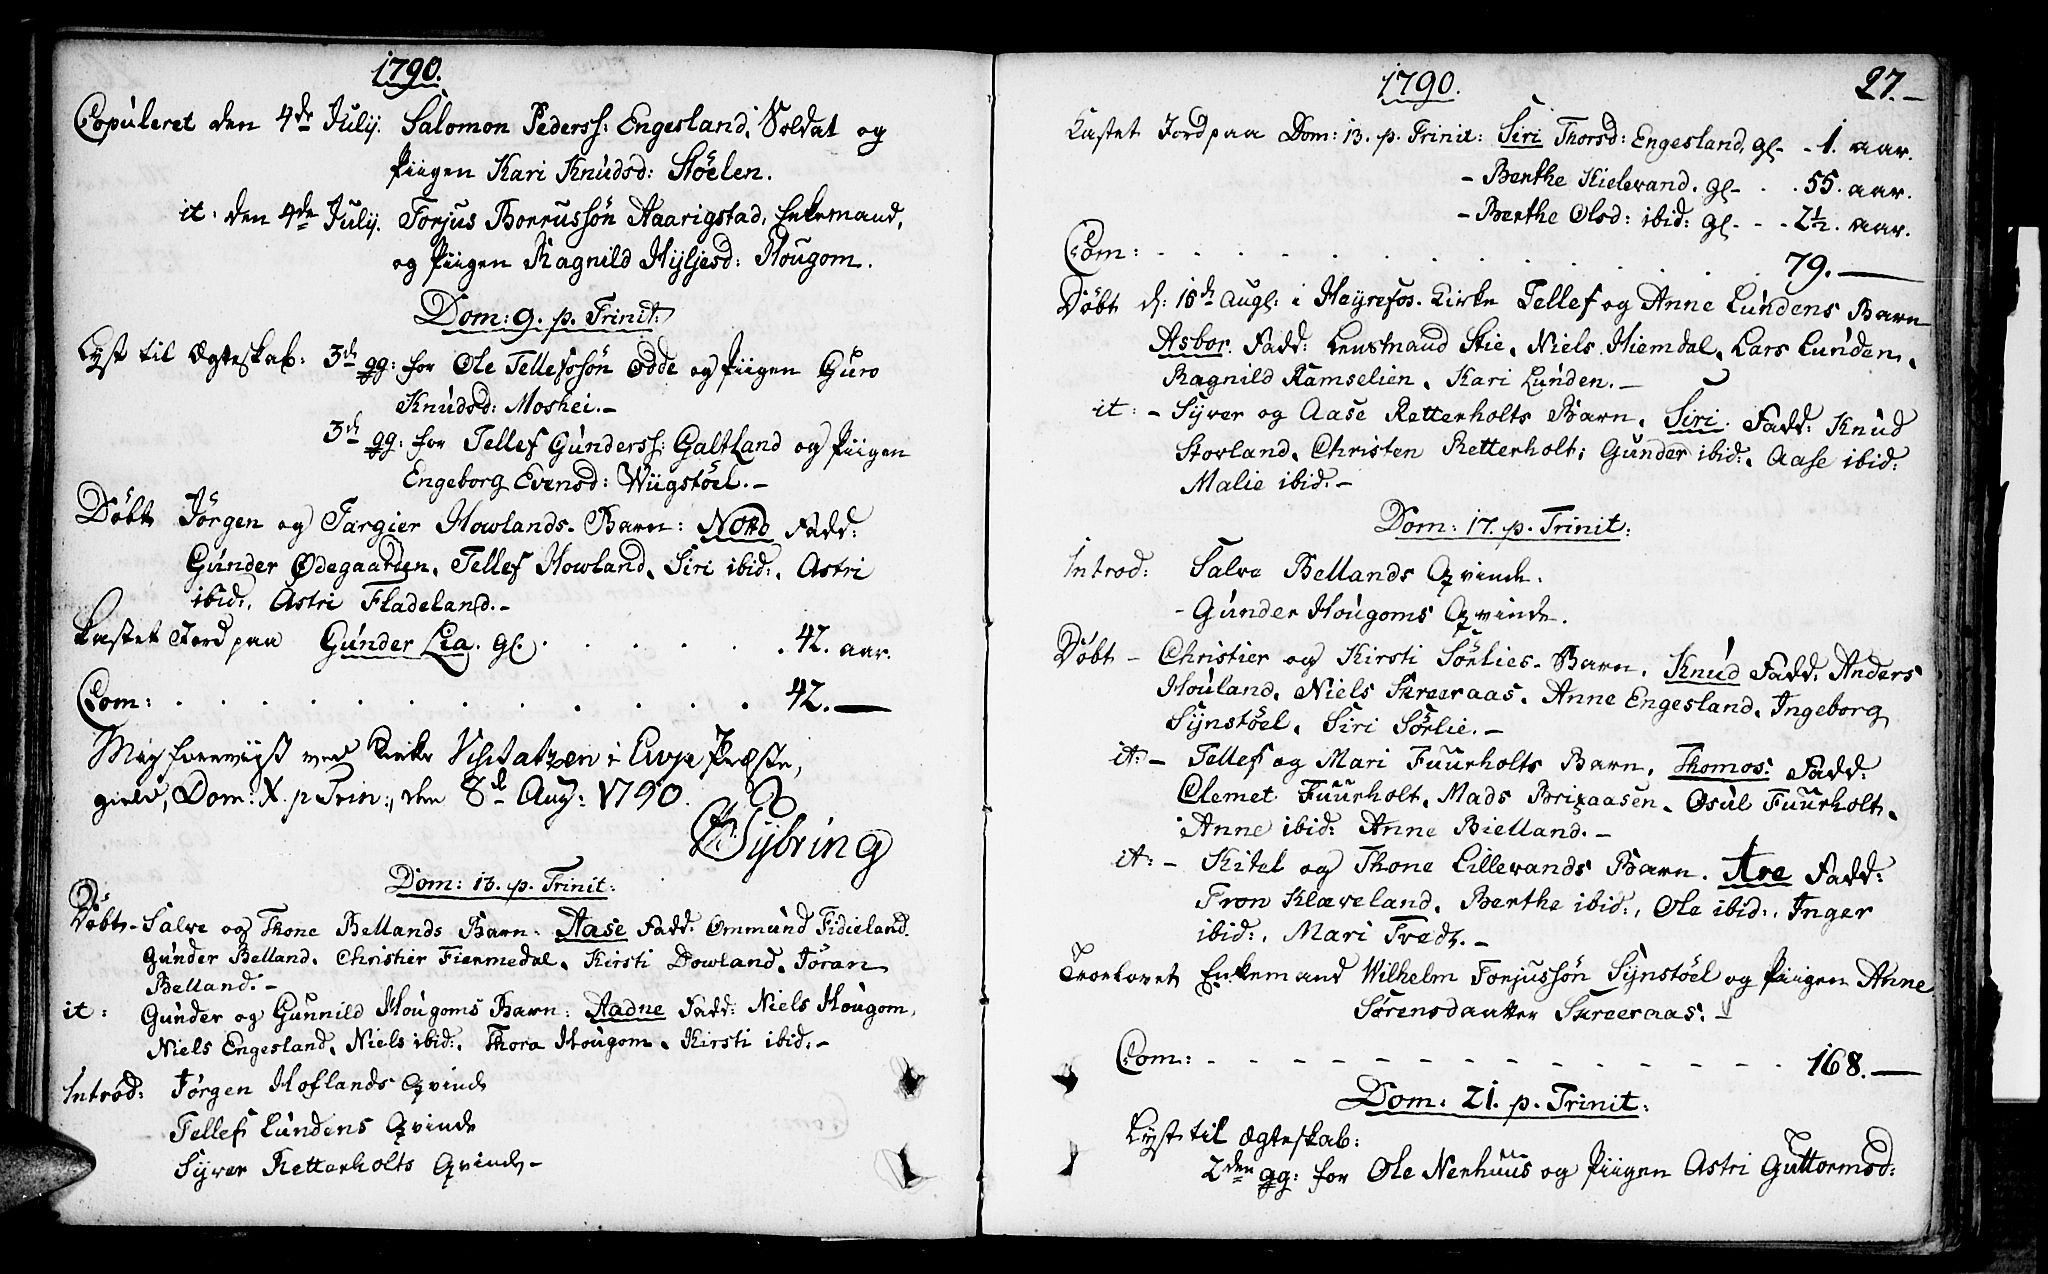 1790.
Copuleret den 4de July. Salomon Pederss: Engesland, Soldat og
Piigen Kari Knudsd: Stöelen.
it: den 4de July. Torjus Borrussön Aaarigstad, Enkemand,
og Piigen Ragnild Hyljesd: Hougom.
Dom: 9. p. Trinit:
Lyst til Ægteskab: 3de gg: for Ole Tellefssön Odde og Piigen Guro
Knudsd: Moskei.-
3de gg: for Tellef Gunderss: Galtland og Piigen
Engeborg Evensd: Wiigstöel.-
Döbt Jörgen og Targier Howlands Barn: Nord Fadd:
Gunder Ødegaarden, Tellef Howland, Siri ibid:, Astri
ibid:, Astri Fladeland.-
Kastet Jord paa Gunder Lia. gl. . . . . . . 42. aar.
Com: . . . . . . . . . . . . . 42.—
Mig foreviist ved Kirke Visitatzen i Evje Præste,
gield, Dom: X. p Trin:, den 8de Aug: 1790.
Sybring
Dom: 13. p. Trinit:
Döbt- Salve og Thone Bellands Barn: Aase Fadd: Ommund Fidieland.
Gunder Belland, Christier Fiermedal, Kirsti Dowland, Jöran
Belland.-
it: Gunder og Gunnild Hougoms Barn: Aadne Fadd: Niels Hougom,
Niels Engesland, Niels ibid:, Thora Hougom, Kirsti ibid:-
Introd: Jörgen Hoflands Qvinde
Tellef Lundens Qvinde
Syver Retterholts Qvinde-
1790. 27.-
Kastet Jord paa Dom: 13. p. Trinit: Siri Thorsd: Engesland, gl- - 1. aar.
- Berthe Kielevand. gl- . . 55. aar.
- Berthe Olsd: ibid: gl- - - 2½. aar.
Com: . . . . . . . . . . . . . 79.—
Döbt d: 15de Aug: i Høyrefos Kirke Tellef og Anne Lundens Barn
Asbor. Fadd: Lensmand Stie, Niels Hiemdal, Lars Lunden,
Ragnild Ramselien, Kari Lunden.-
it: - Syver og Aase Retterholts Barn, Siri. Fadd: Knud
Storland, Christen Retterholt; Gunder ibid:, Aase ibid:
Malie ibid.-
Dom: 17. p. Trinit:
Introd: Salve Bellands Qvinde.
- Gunder Hougoms Qvinde.
Döbt - Christier og Kirsti Sörlies Barn, Knud Fadd, Anders
Houland, Niels Skreeraas, Anne Engesland, Ingeborg
Synstöel, Siri Sörlie.-
it: - Tellef og Mari Fuurholts Barn, Thomos: Fadd:
Clemet Fuurholt, Mads Brixaasen, Osul Fuurholt,
Anne ibid: Anne Bielland.-
it: - Kitel og Thone Lillevands Barn. Are Fadd:
Tron Klæveland, Berthe ibid:, Ole ibid:, Inger
ibid:, Mari Tredz.-
Trolovet Enkemand Wilhelm Torjussön Synstöel og Piigen Anne
Sørensdaatter Skreeraas.-
Com: - - - - - - - - - - - - 168.—
Dom: 21. p. Trinit:
Lyst til Ægteskab:
2den gg: for Ole Nerhuus og Piigen Astri Guttormsd: